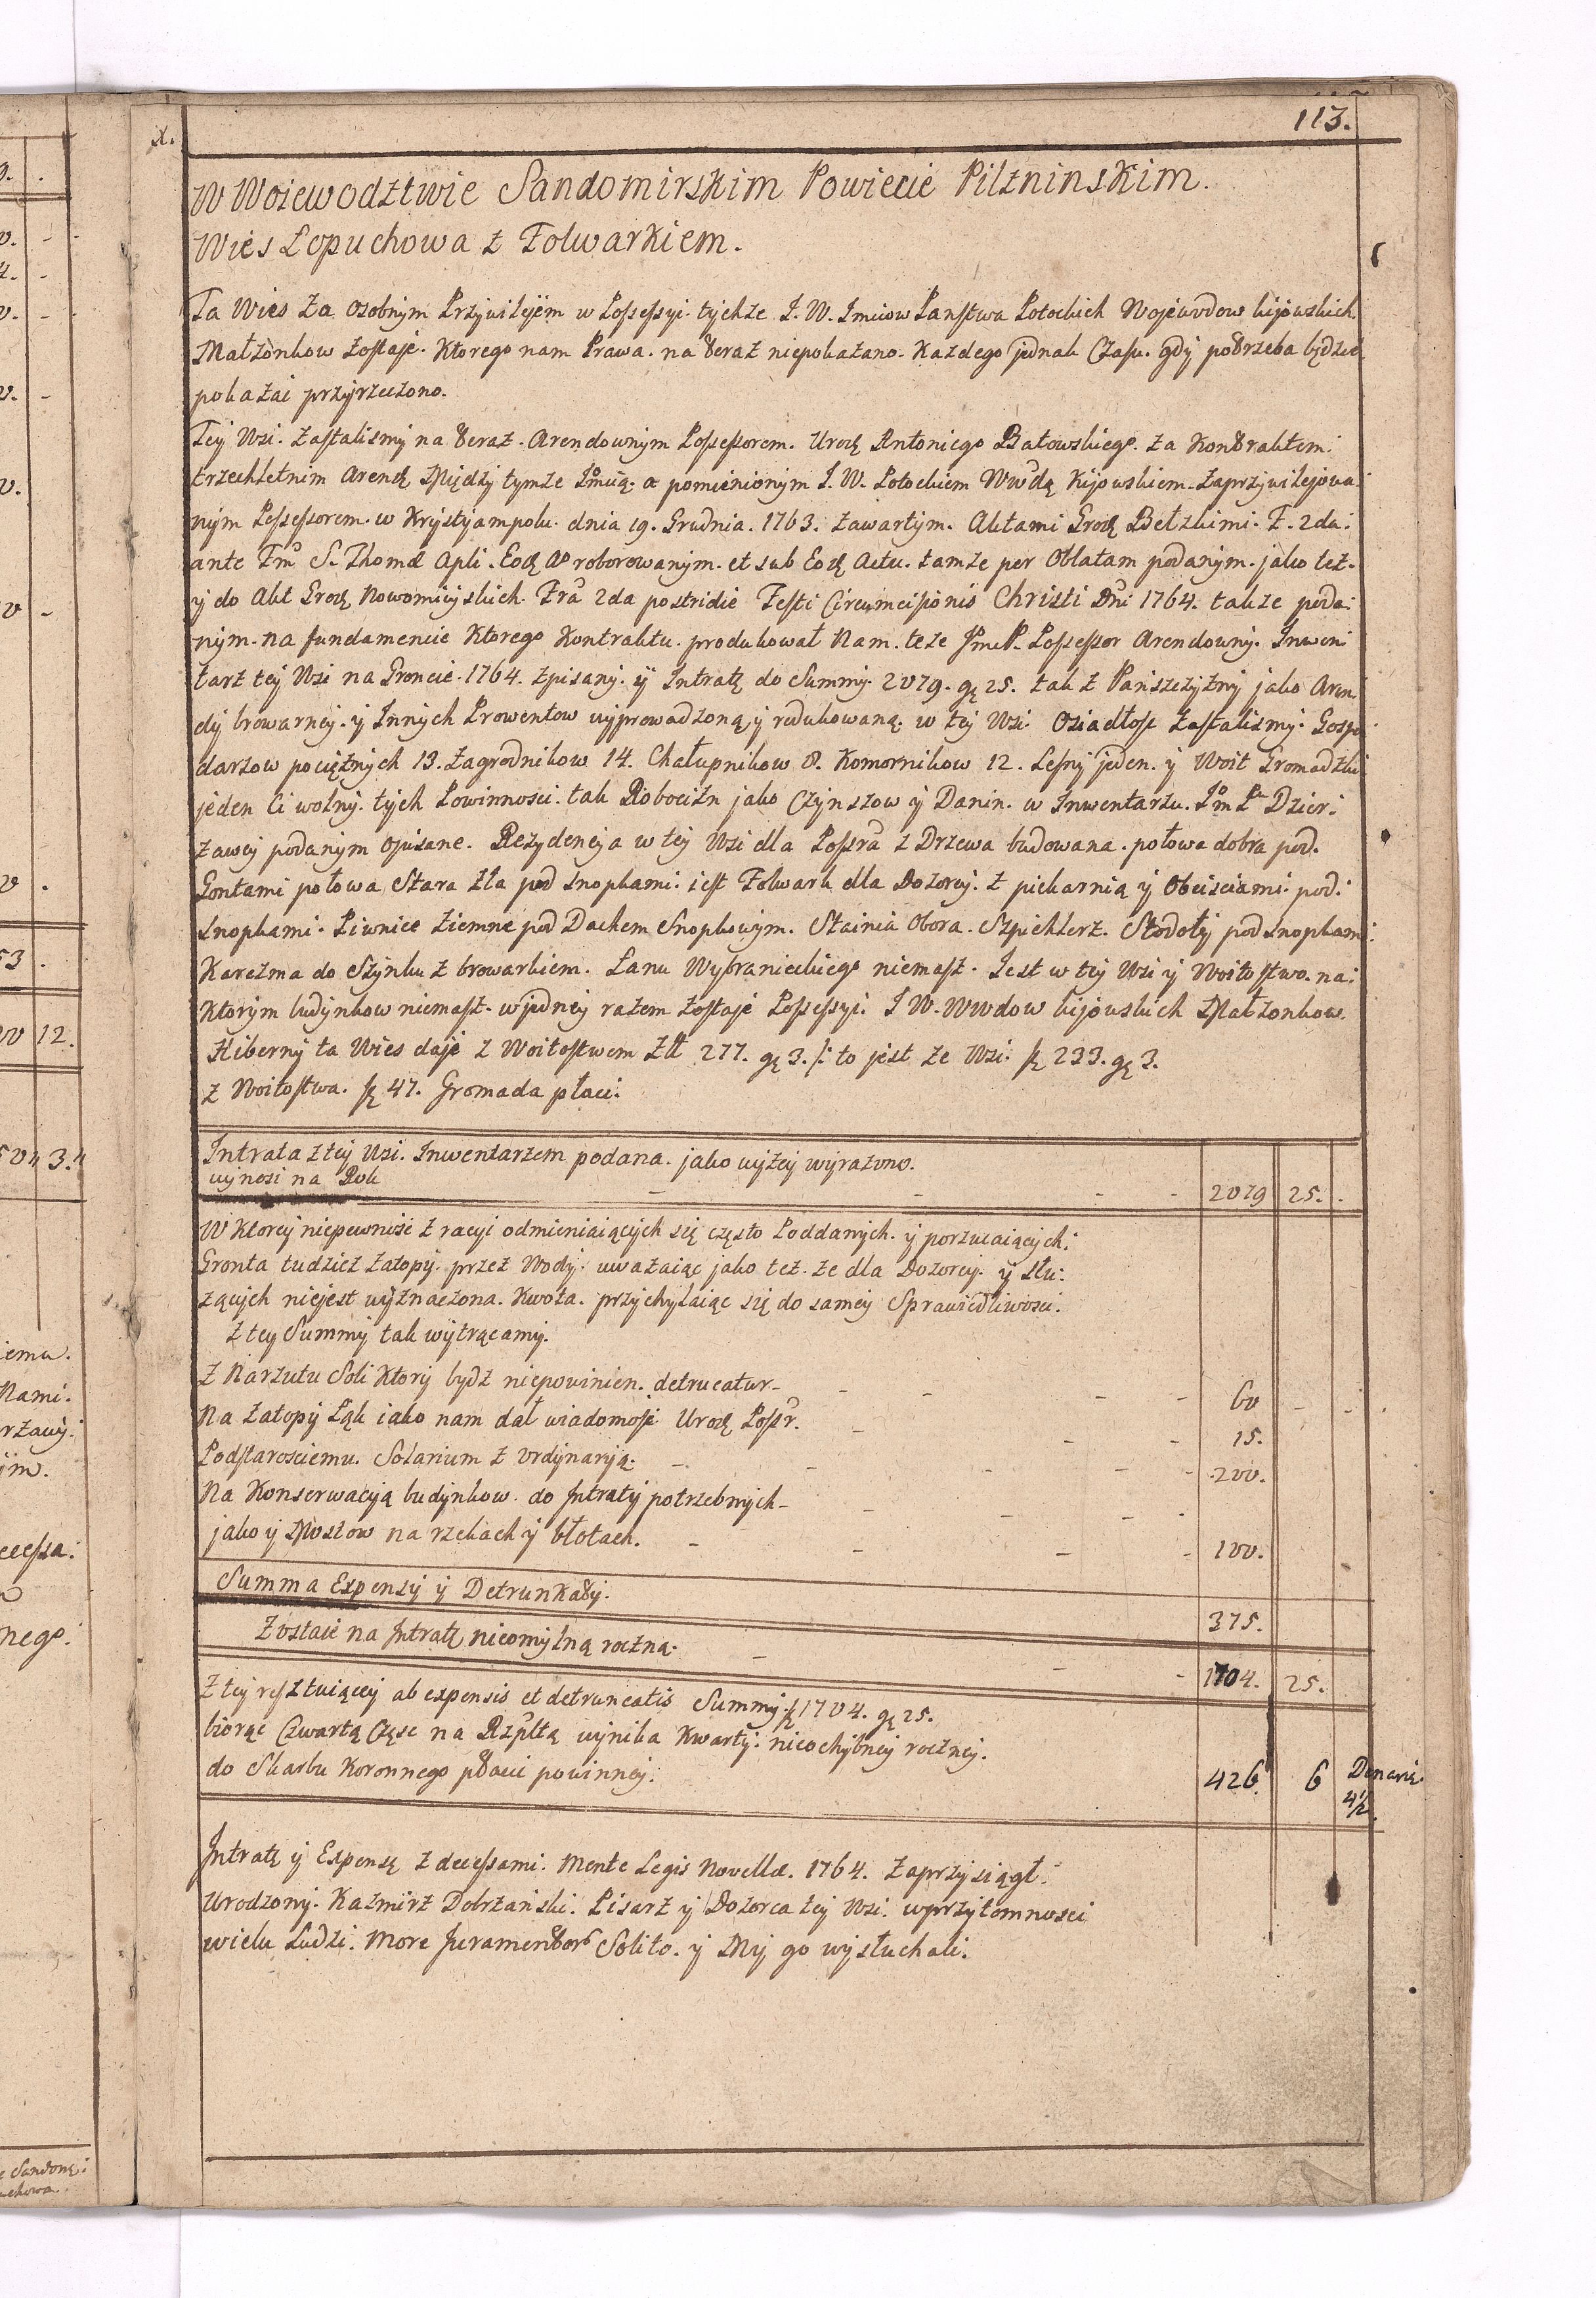 113.
W Woiewodztwie Sandomirskim Powiecie Pilzninskim.
Wies Łopuchowa z Folwarkiem.
Ta Wies za osobnym Przywilejem w Possessyi tychze J. W. Imciow Panstwa Potockich Wojewodow kijowskich
Małzonkow zostaje. Ktorego nam Prawa. na teraz niepokazano. Kazdego jednak Czasu. gdy potrzeba będzie
pokazac przyrzeczono.
Tey Wsi. zastalismy na teraz. Arendownym Possessorem. Urodz Antoniego Batowskiego. za Kontraktem:
trzechletnim Arend Między tymze Jmcią. a pomienionym J. W. Potockiem Wwdą Kijowskiem. zaprzywilejowa:
nym Possessorem. w Krystyampolu. dnia 19. Grudnia. 1763. zawartym. Aktami Grodz Bełzkimi. F. 2da:
ante Fm S. Thomæ Apli. Eod Ao roborowanym. et sub Eod Actu. tamze per Oblatam podanym. jako tez.
y do Akt Grodz Nowomieyskich. Fra 2da postridie Festi Circumcisionis Christi Dni 1764. takze poda:
nym. na fundamencie Ktorego Kontraktu. produkował Nam. teze JmcP. Possessor Arendowny. Inwen:
tarz tey Wsi na Groncie. 1764. spisany. y Intratę do Summy. 2079. gr 25. tak z Panszczyzny jako Aren:
dy browarney. y Innych Prowentow wyprowadzoną y redukowaną. w tey Wsi Osiadłosc zastalismy. Gospo:
darzow pociężnych 13. zagrodnikow 14. Chałupnikow 8. Komornikow 12. Lesny jeden. y Woit Gromadzki
jeden Ci wolny. tych Powinnosci. tak Robocizn jako Czynszow y Danin. w Inwentarzu. Jm Pa Dzier:
zawcy podanym opisane. Rezydencya w tey Wsi dla Possra z Drzewa budowana. połowa dobra pod.
Gontami połowa Stara zła pod snopkami. iest Folwark dla Dozorcy. z piekarnią y Obeisciami pod:
snopkami. Piwnice ziemne pod Dachem Snopkowym. Stainia Obora. Szpichlerz. Stodoły pod snopkami:
Karczma do szynku z browarkiem. Łanu Wybranieckiego niemasz. Jest w tey Wsi y Woitostwo. na:
Ktorym budynkow niemasz. w jedney razem zostaje Possessyi. J W. WWdow kijowskich Małzonkow.
Hiberny ta Wies daje z Woitostwem Złt 277. gr 3. /: to jest ze Wsi. zł 233. gr 3.
z Woitostwa. zł 47. Gromada płaci:
Intrata z tey Wsi. Inwentarzem podana. jako wyzey wyrazono.
wynosi na Rok 2079 25.
W Ktorey niepewnosc z racyi odmieniaiących się często Poddanych. y porzucaiących:
Gronta tudziez zatopy. przez Wody. uwazaiąc jako tez. ze dla Dozorcy. y słu:
zących niejest wyznaczona. Kwota. przychylaiąc się do samey Sprawiedliwosci.
z tey Summy tak wytrącamy.
Z Narzutu Soli Ktory bydz niepowinien. detrucatur 60
Na zatopy Łąk iako nam dał wiadomosc Urodz Possr. 15.
Podstarosciemu. Solarium z ordynaryą. 200.
Na Konserwacyą budynkow. do Intraty potrzebnych
jako y Mostow na rzekach y błotach. 100.
Summa Expensy y Detrunkaty. 375.
Zostaie na Intratę nieomylną roczną. 1704. 25.
Z tey resztuiącey ab expensis et detruncatis Summy. zł 1704. gr 25.
biorąc Czwartą Częsc na Rzpltą wynika Kwarty. nieochybney roczney.
do Skarbu Koronnego płacic powinney. 426. 6 Denarii. 4½.
Intratę y Expensę z decessami. Mente Legis Novellæ. 1764. zaprzysiągł.
Urodzony. Kazmirz Dobrzanski. Pisarz y Dozorca tey Wsi. w przytomnosci
wielu Ludzi. More Juramentor Solito. y My go wysłuchali.